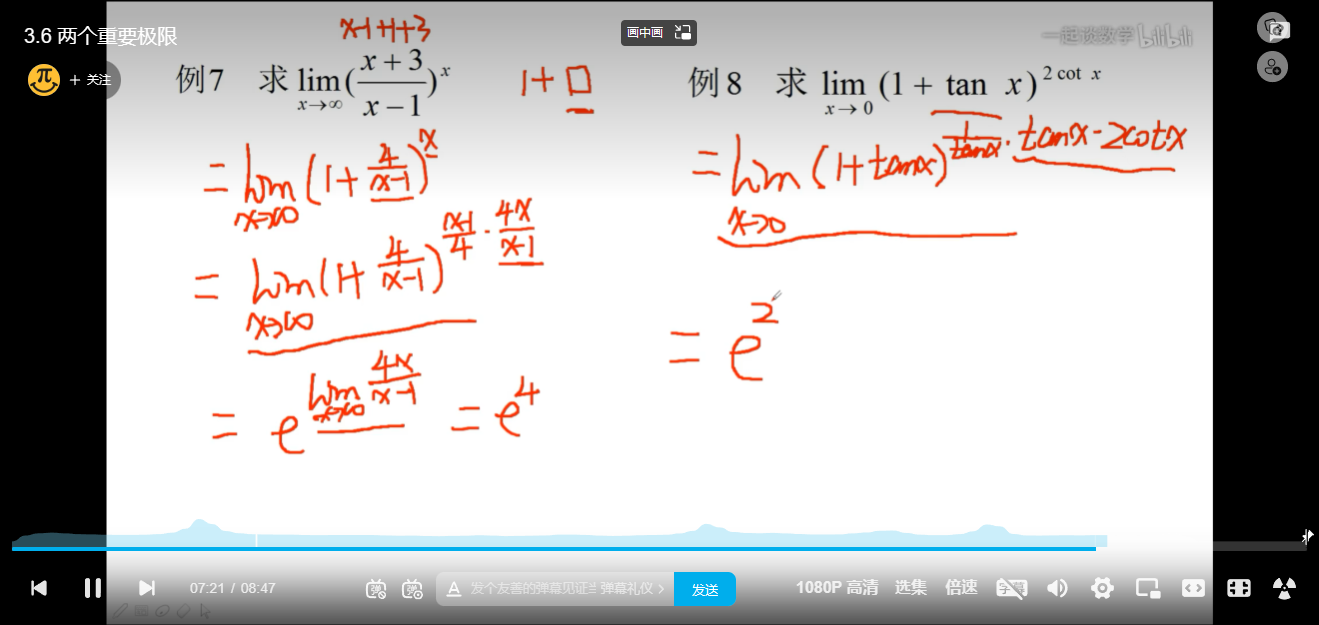 3.6 两个重要极限
画中画
一起谈数学 bilibili
+ 关注
x-1+1+3
例7 求 lim x→∞ (x+3 / x−1)^x
1+□
= lim x→∞ (1+ 4/x-1)^x
= lim x→∞ (1+ 4/x-1)^(x-1/4 · 4x/x-1)
= e^(lim x→∞ 4x/x-1) = e^4
例8 求 lim x→0 (1 + tan x)^(2 cot x)
= lim x→0 (1+tanx)^(1/tanx · tanx·2cotx)
= e^2
07:21 / 08:47
弹
弹
A 发个友善的弹幕见证 弹幕礼仪 >
发送
1080P 高清
选集
倍速
字幕